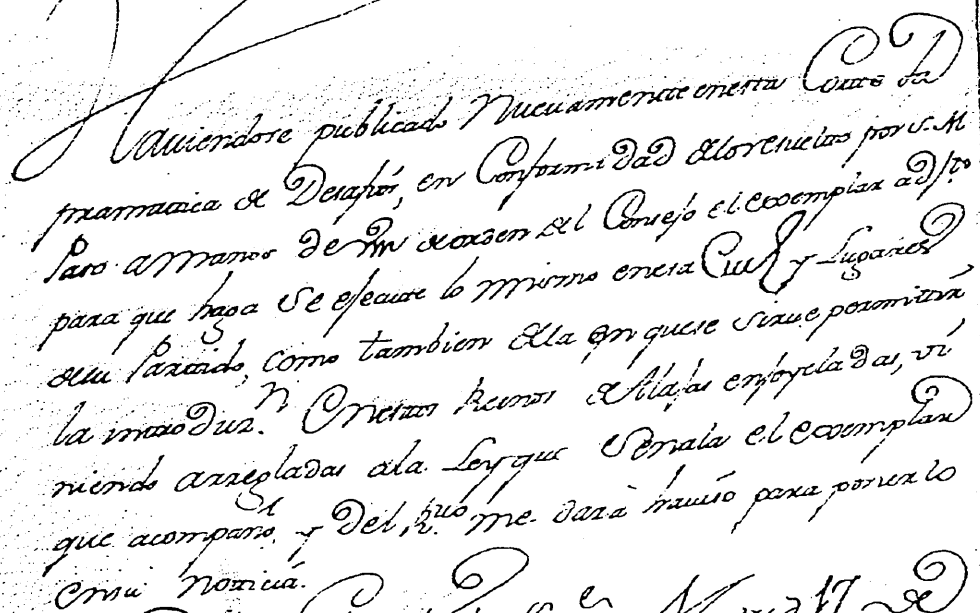 Haviendose publicado Nuevamente en esta Corte la
pramatica de Desafios, en Conformidad delo resuelto por S. M
Paso a manos de Vm de orden del Consejo el exemplar adj.to
para que haga Se ejecute lo mismo en esa Ciud y Lugares
de su Partido, como tambien de la en que se sirve permitir
la introduz.n En estos Reinos de Alajas enjoyeladas, vi
niendo arregladas ala Ley que Señala el exemplar
que acompaño, y del R.uo me dara haviso para ponerlo
en su noticia.
17 de